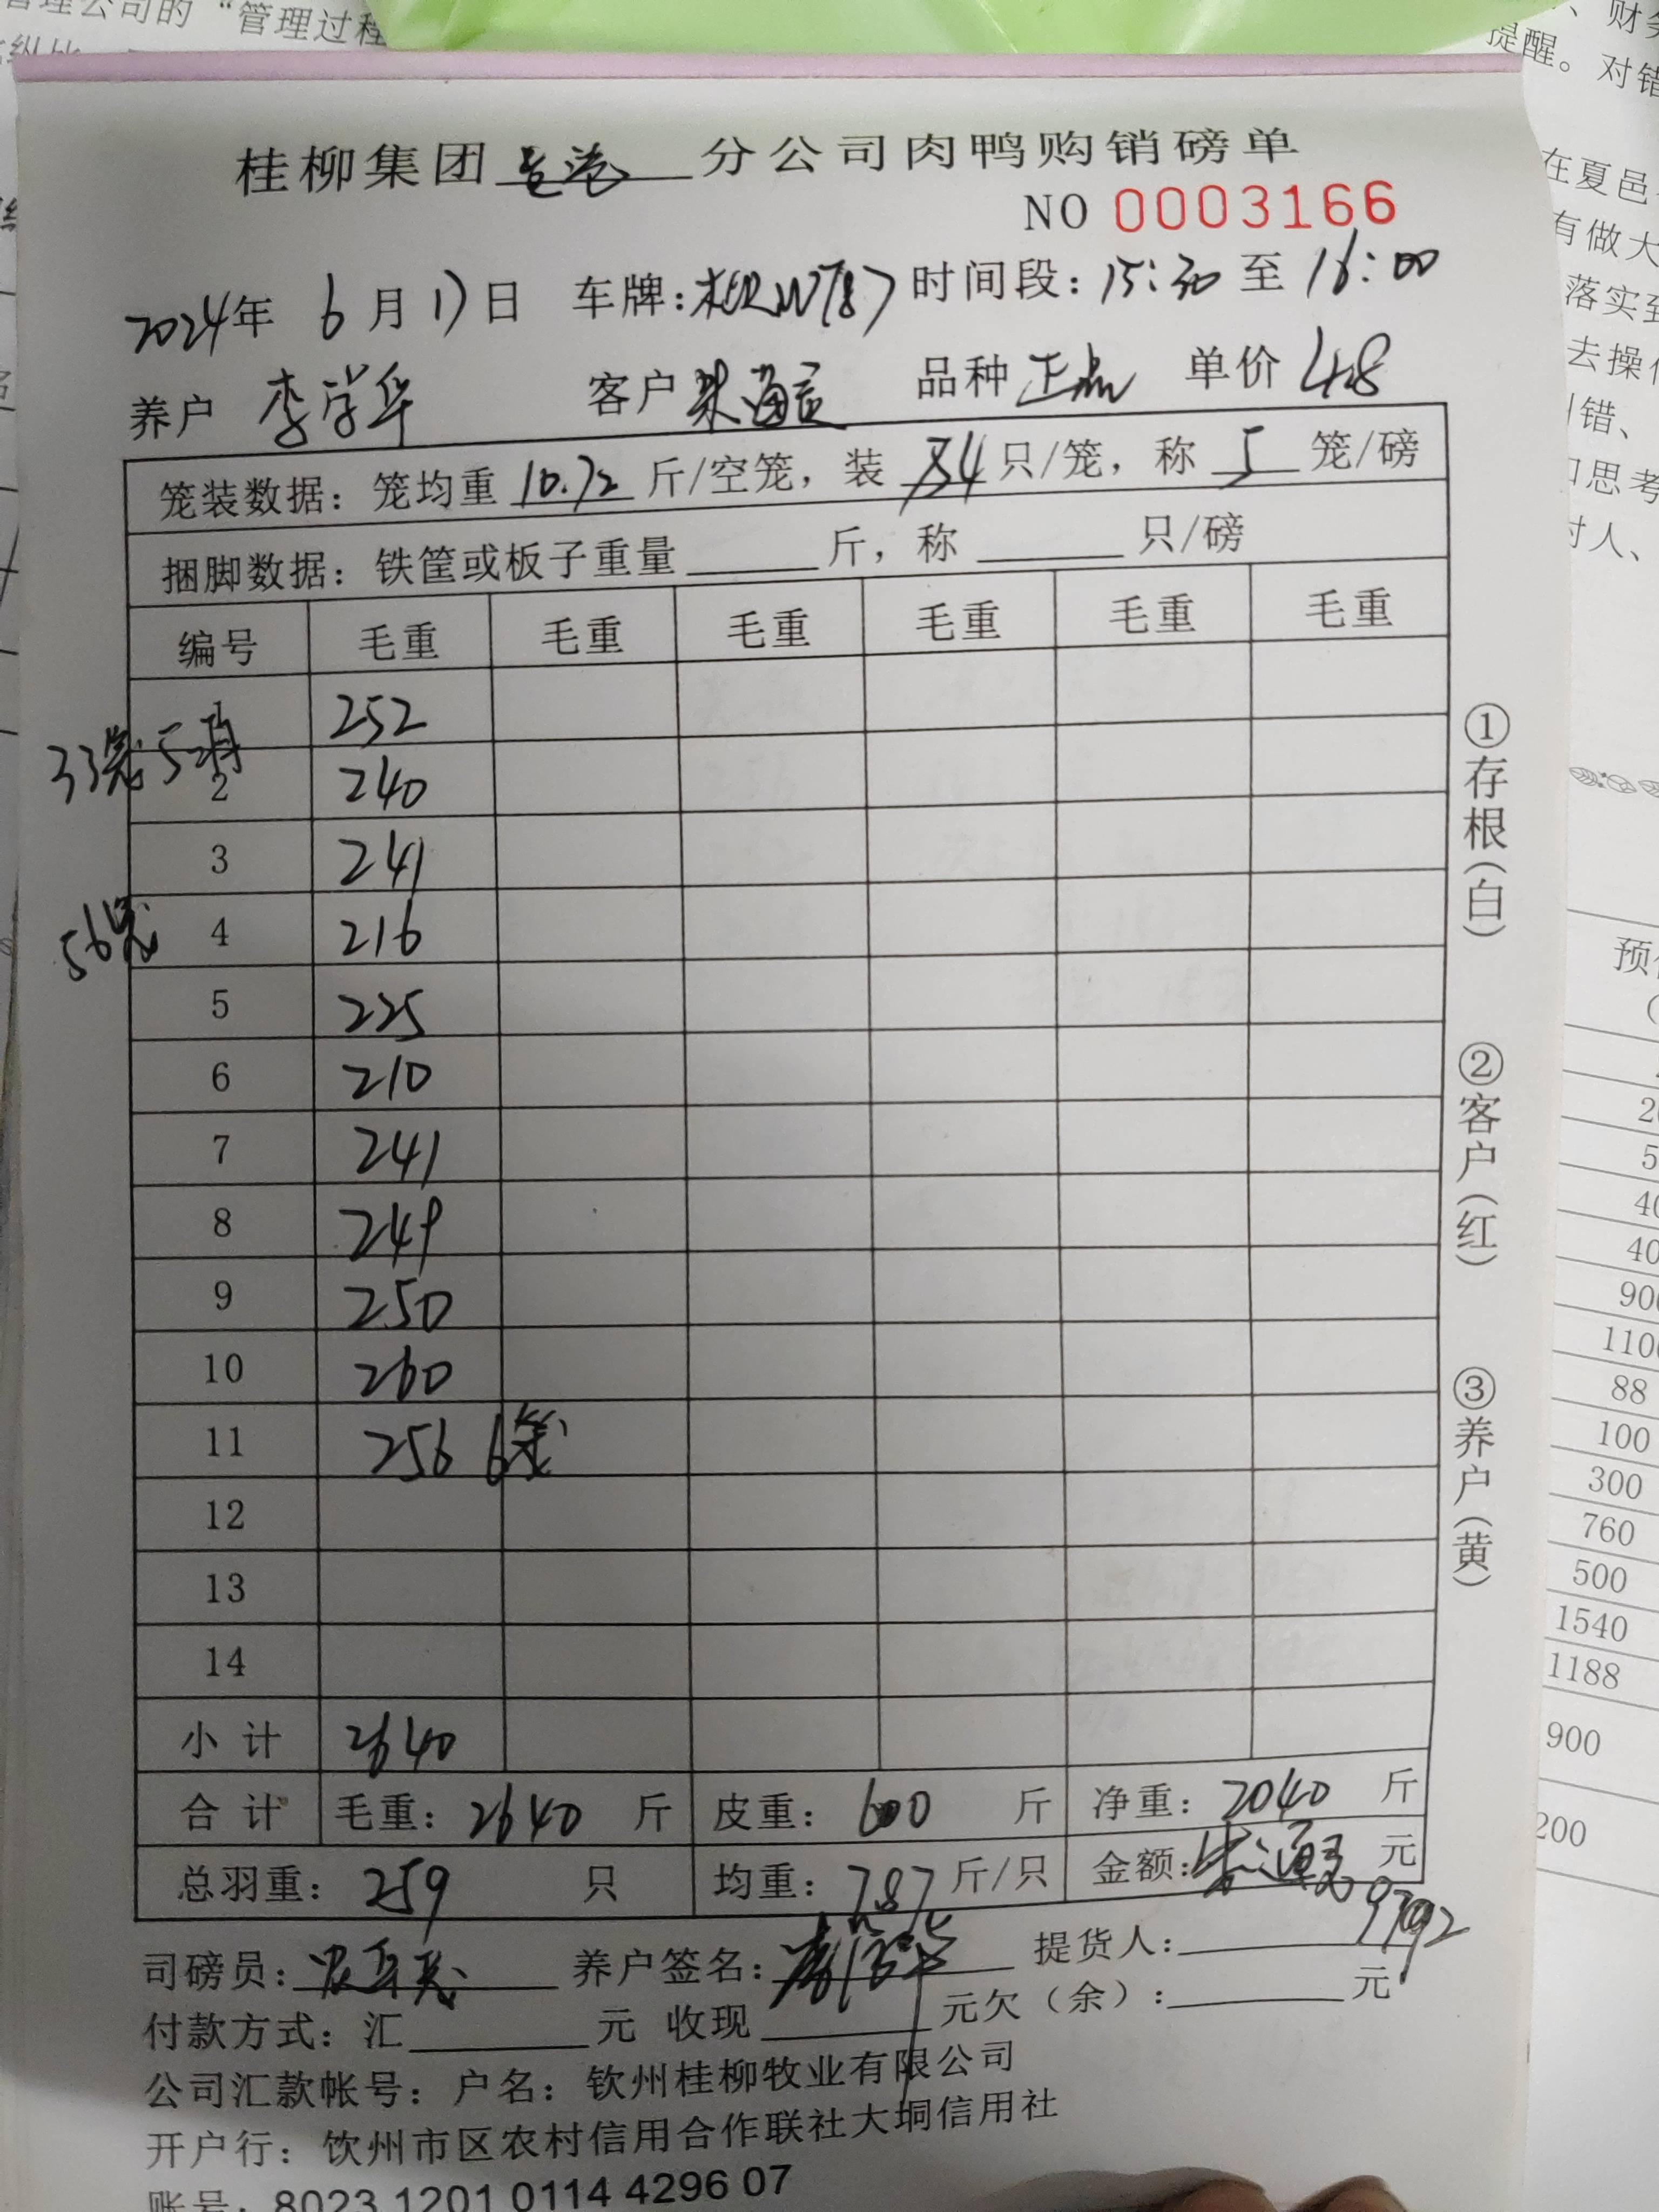 管理公司的“管理过程
提醒。对错
桂柳集团 分公司肉鸭购销磅单
NO 0003166
2024年 6月17日 车牌: W787 时间段:15:30至16:00
养户 李学华 客户 品种 正品 单价 4.8
笼装数据:笼均重 10.72 斤/空笼,装 只/笼,称 5 笼/磅
捆脚数据:铁筐或板子重量 斤,称 只/磅
编号 毛重 毛重 毛重 毛重 毛重 毛重
1 252
33笼5只
2 240
3 241
56笼
4 216
5 225
6 210
7 241
8 249
9 250
10 260
11 256 6笼
12
13
14
小计 2640
合计 毛重:2640 斤 皮重:600 斤 净重:2040 斤
总羽重:259 只 均重:7.87 斤/只 金额: 元
9792
司磅员: 养户签名: 提货人:
付款方式:汇 元 收现 元欠(余): 元
公司汇款帐号:户名:钦州桂柳牧业有限公司
开户行:钦州市区农村信用合作联社大垌信用社
账号:8023 1201 0114 4296 07
①存根(白)
②客户(红)
③养户(黄)
在夏邑
有做大
落实到
去操作
思考
对人、
900
1100
88
100
300
760
500
1540
1188
900
200